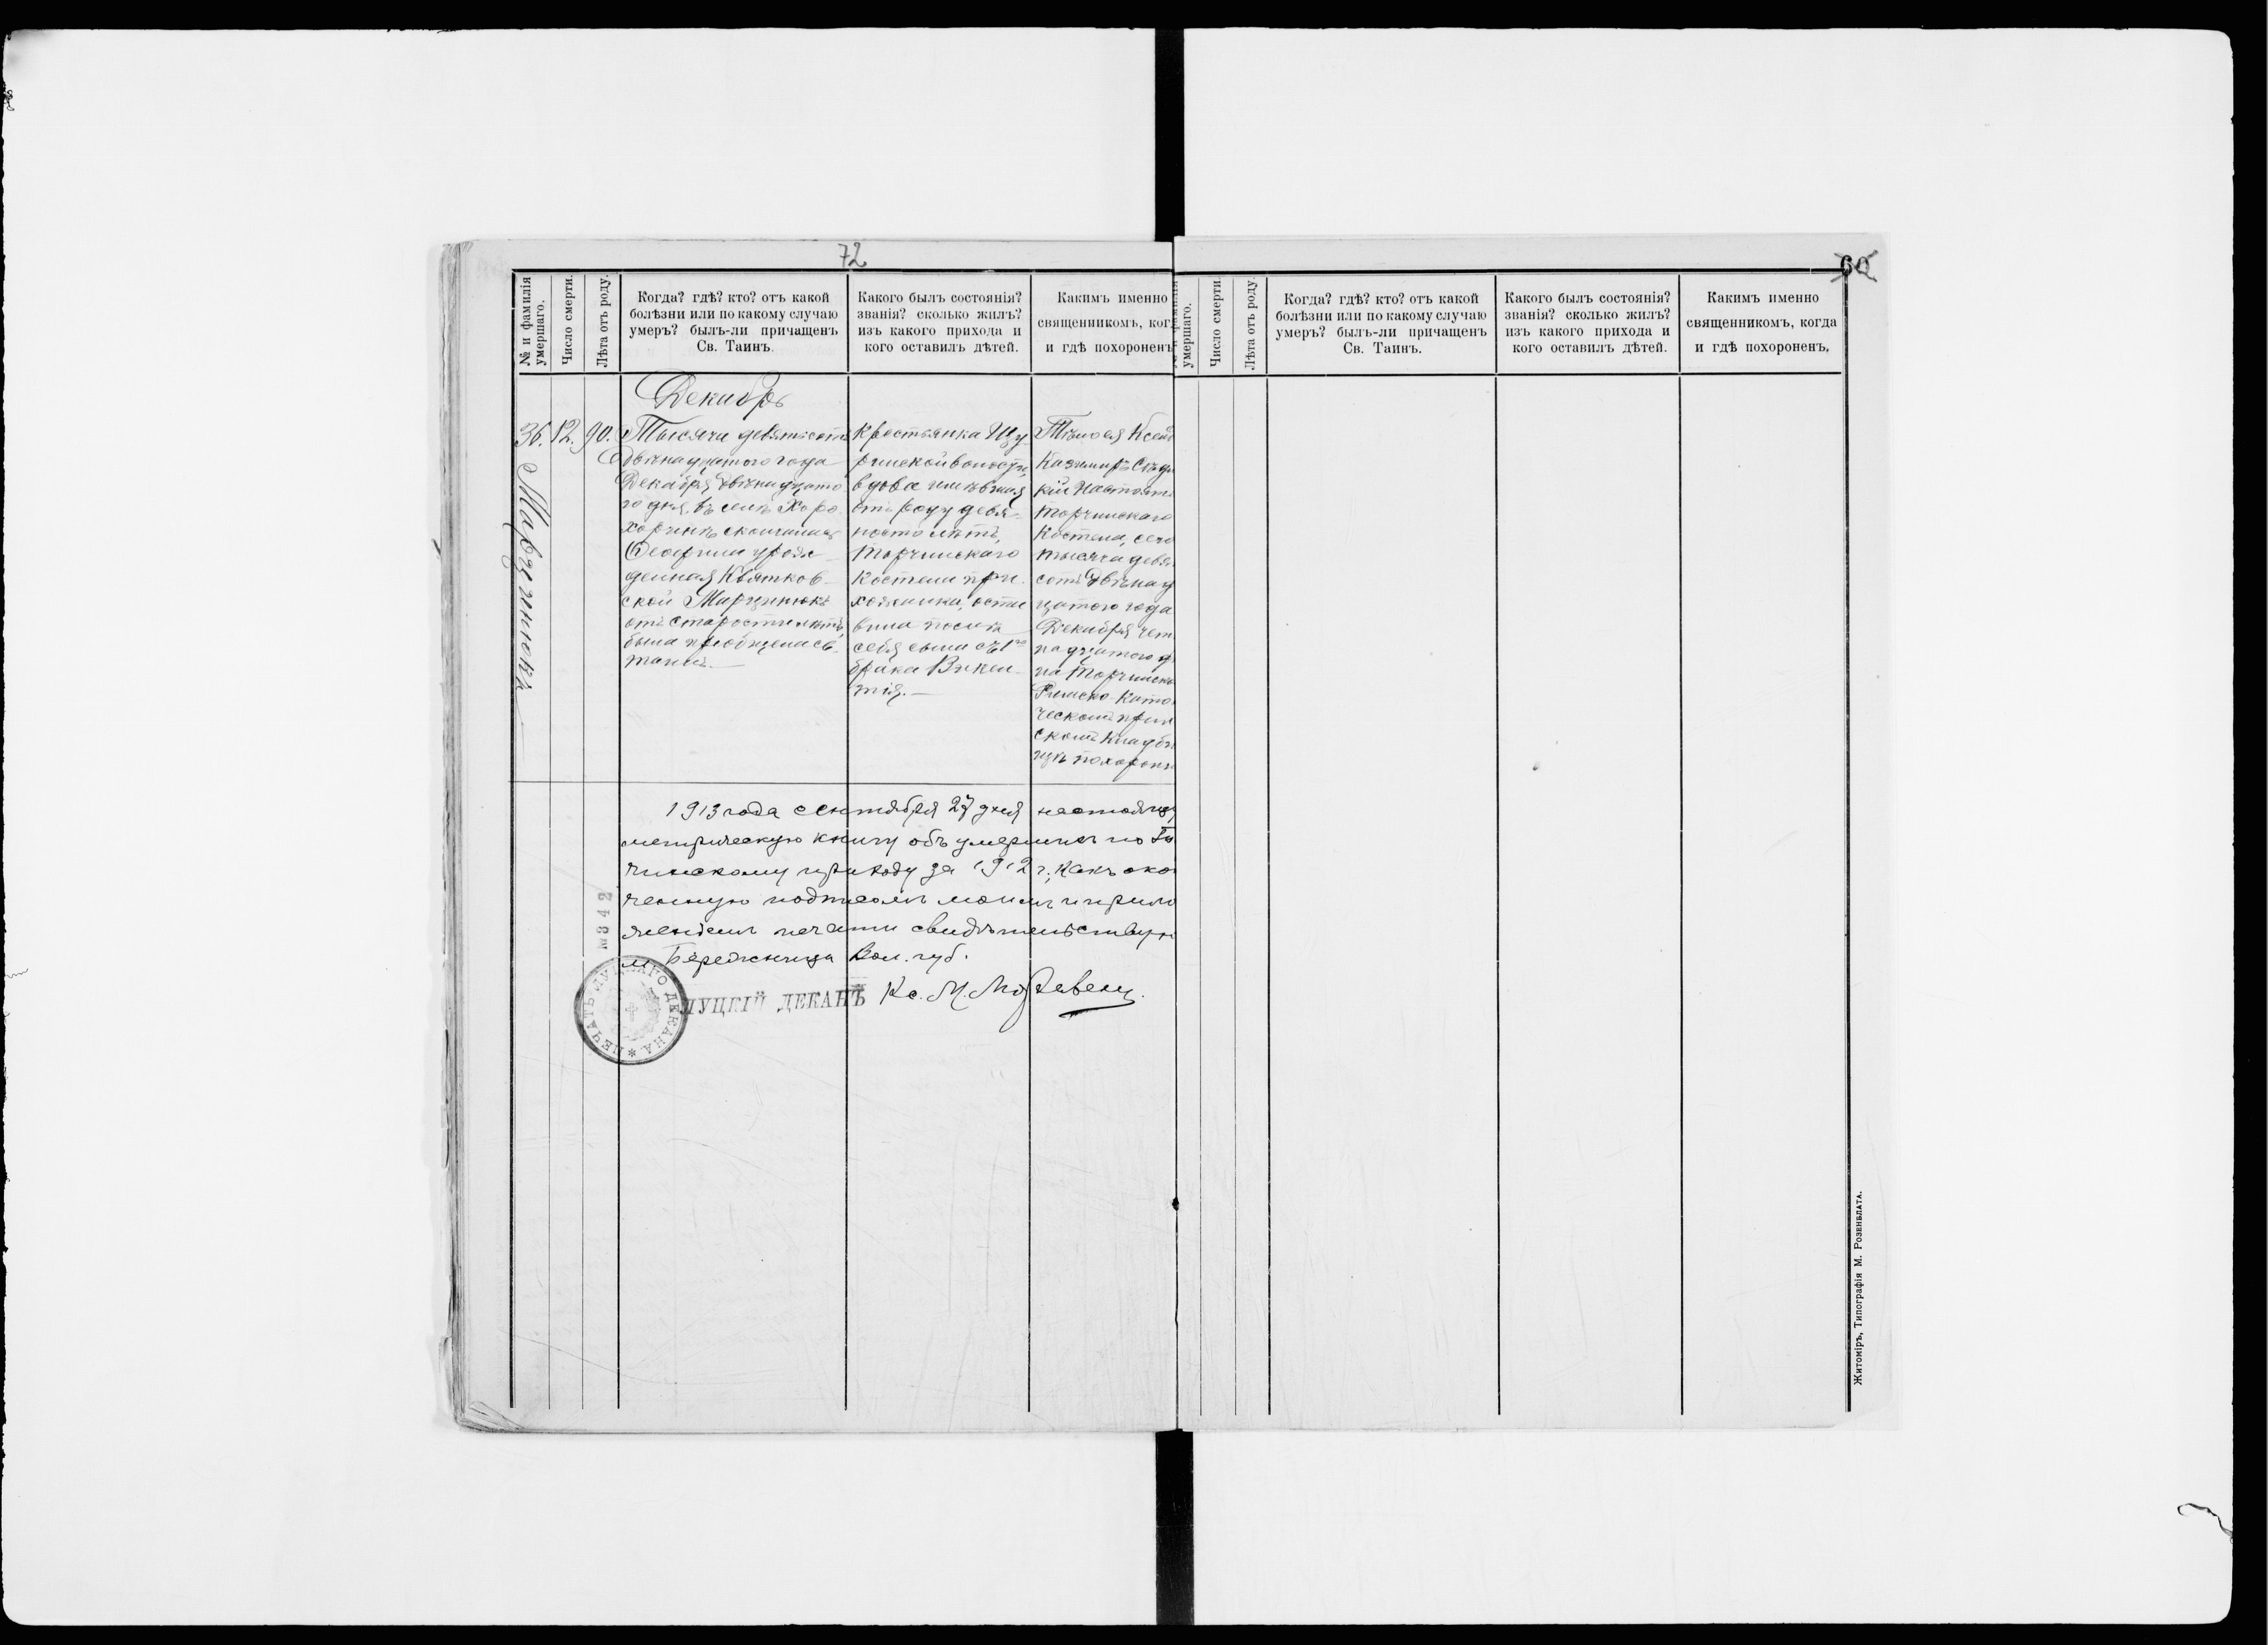 72
№ и фамилія умершаго.
Число смерти.
Лѣта отъ роду.
Когда? гдѣ? кто? отъ какой
болѣзни или по какому случаю
умеръ? былъ-ли причащенъ
Св. Таинъ.
Какого былъ состоянія?
званія? сколько жилъ?
изъ какого прихода и
кого оставилъ дѣтей.
Какимъ именно
священникомъ, ког
и гдѣ похороненъ
Декабрь
36.
12.
90.
Марцинюкъ
Тысяча девятьсотъ
двѣнадцатого года
Декабря двѣнадцато
го дня, въ селѣ Хоро
хоринѣ скончалась
урож
денная Квятков
ской Марцинюкъ
отъ старости лѣтъ,
была пріобщена св.
таинъ.—
Крестьянка Щу
ринской волости,
вдова имѣвшая
отъ роду девя-
носто лѣтъ,
Торчинскаго
Костела при
хожанка, оста
вила послѣ
себя сына съ 1го
брака Викен
тія.—
Тѣло ея Ксендз
Казимиръ
кій Настоят
Торчинскаго
Костела, сего
тысяча девя
сотъ двѣнад
цатого года
Декабря чет
надцатого д
на Торчинско
Римско Като
ческомъ прих
скомъ кладби
щѣ похорони
1913 года сентября 27 дня настоящу
метрическую книгу объ умершихъ по То
чинскому приходу за 1912 г., какъ око
ченную подписомъ моимъ и прило
женіемъ печати свидѣтельствую
м. Бережница Вол. губ.
№ 342
ПЕЧАТЬ ЛУЦКАГО ДЕКАНА
ЛУЦКІЙ ДЕКАНЪ Кс. М.
60
умершаго.
Число смерти.
Лѣта отъ роду.
Когда? гдѣ? кто? отъ какой
болѣзни или по какому случаю
умеръ? былъ-ли причащенъ
Св. Таинъ.
Какого былъ состоянія?
званія? сколько жилъ?
изъ какого прихода и
кого оставилъ дѣтей.
Какимъ именно
священникомъ, когда
и гдѣ похороненъ.
Житоміръ, Типографія М. Розенблата.